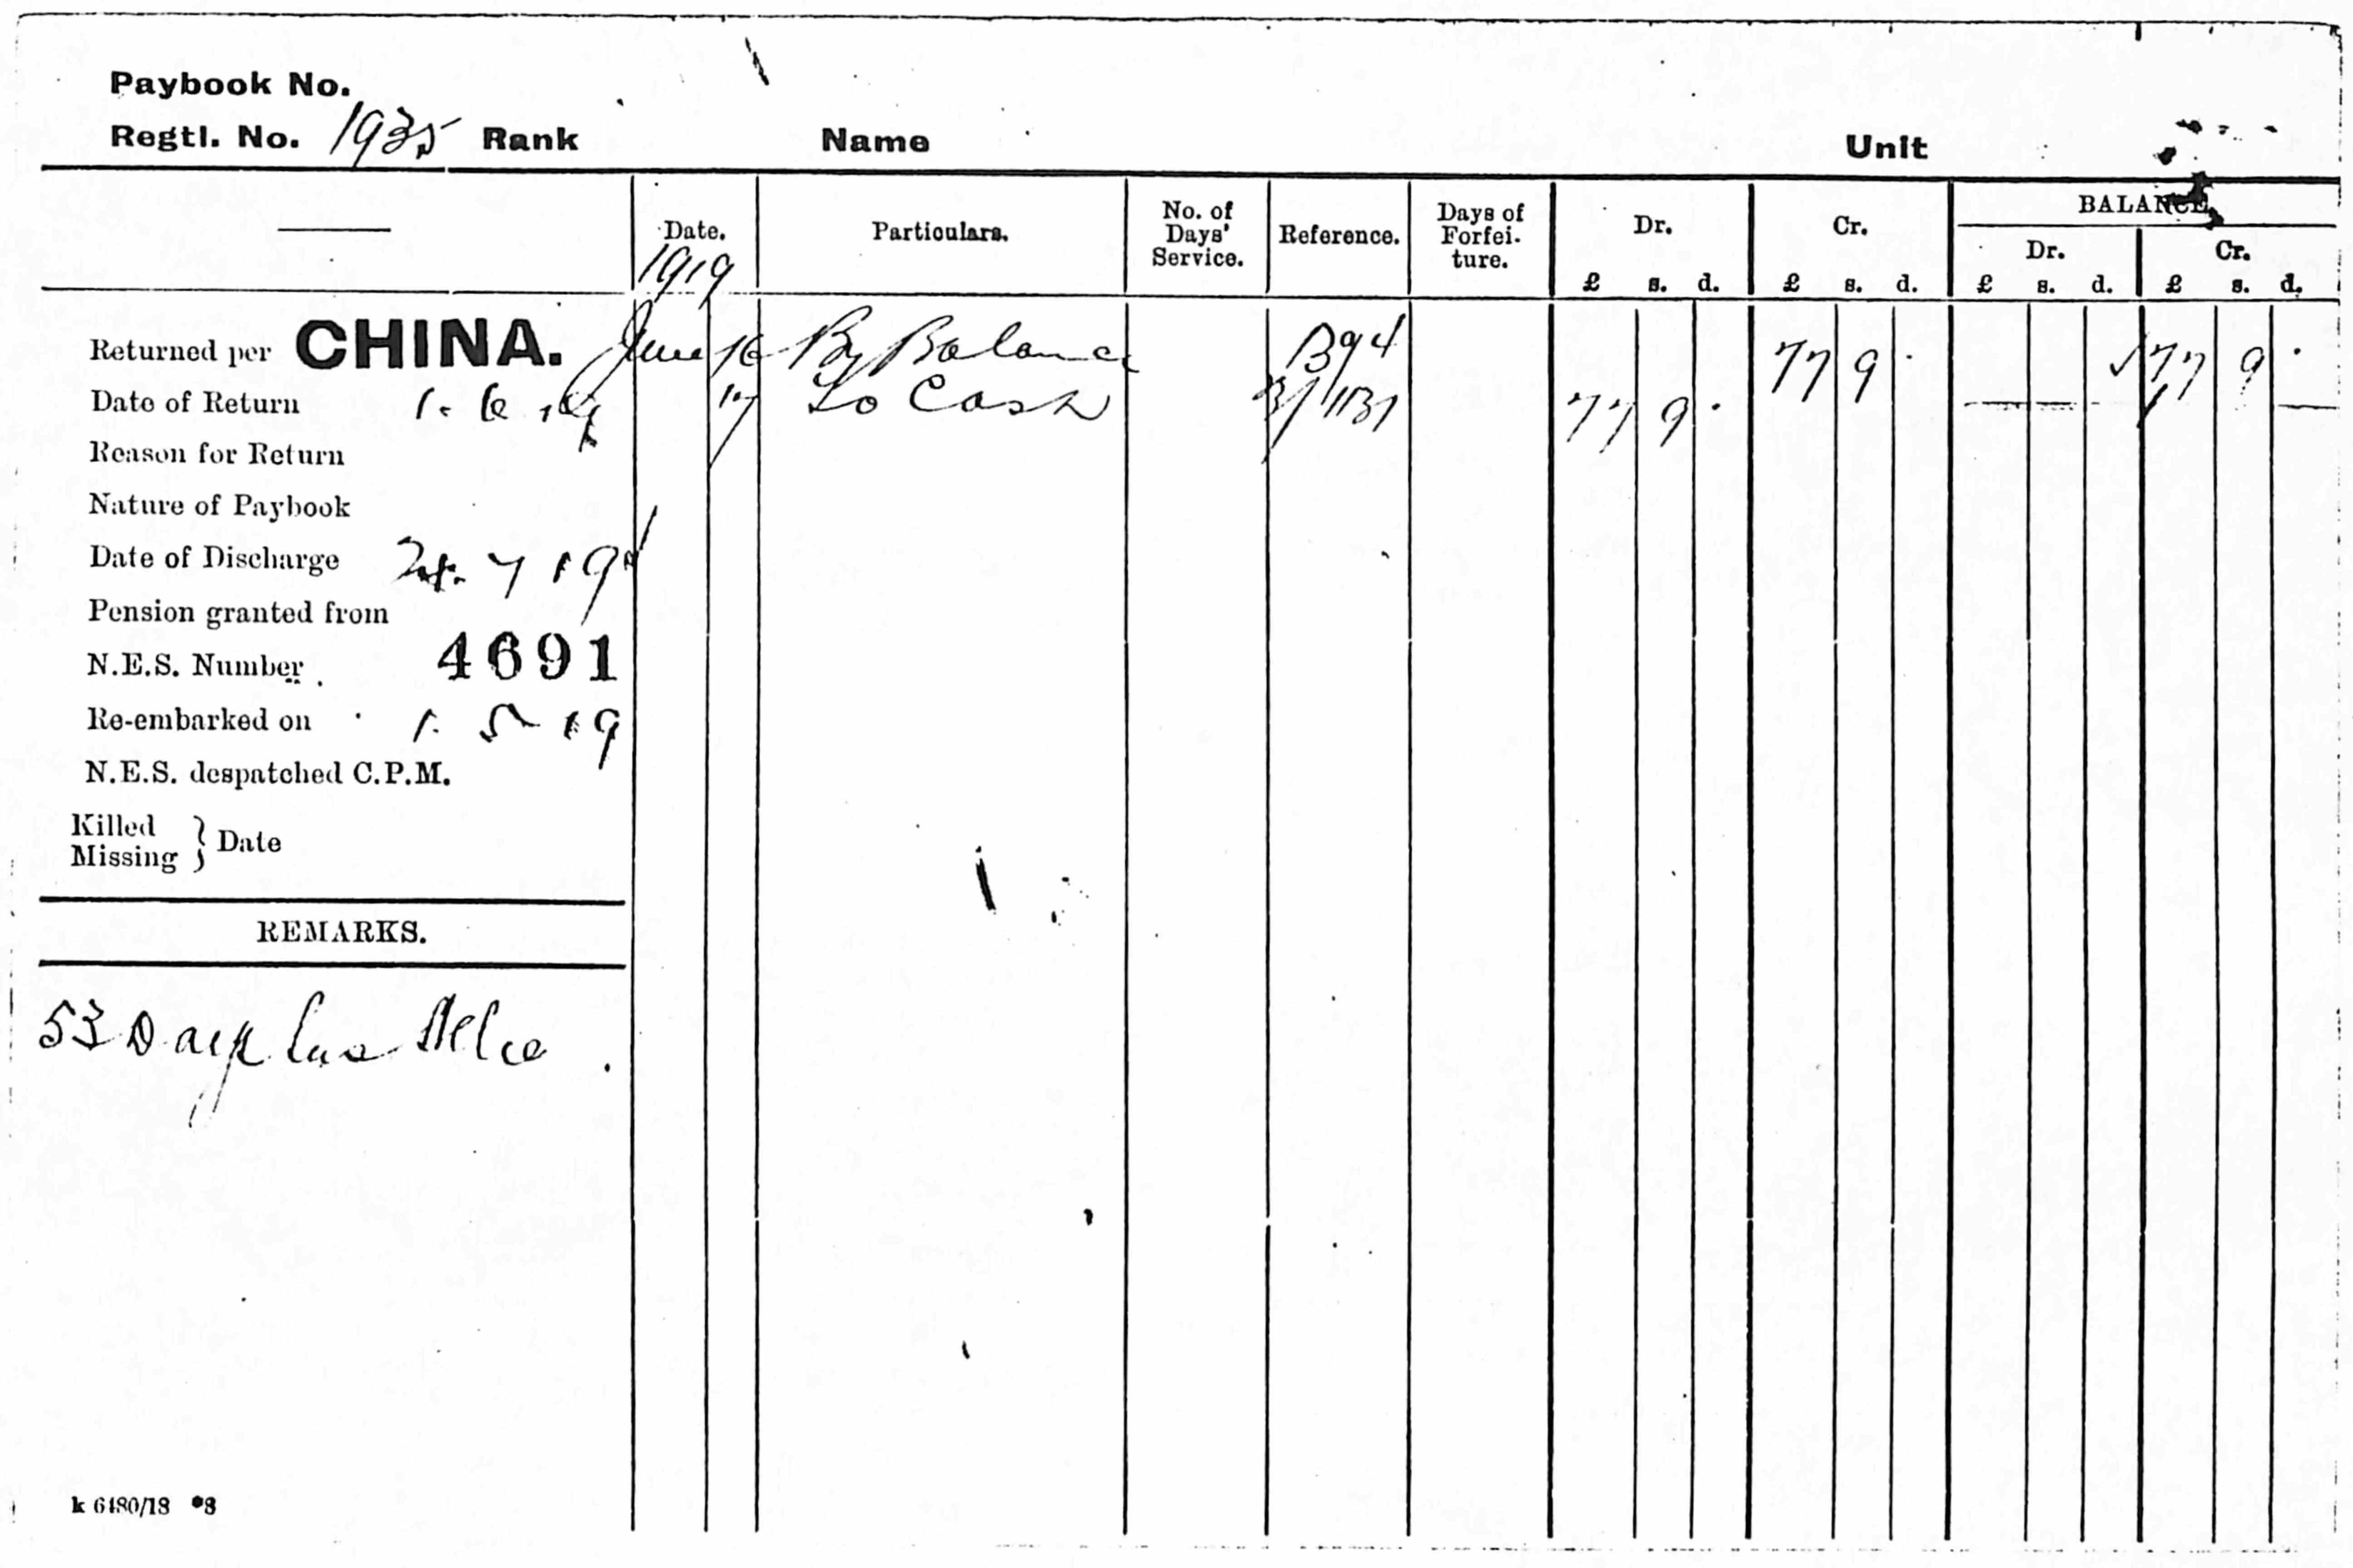 Paybook No.
Regtl. No. 1935 Rank Name Unit
Date. Particulars. No. of Days' Service. Reference. Days of Forfei- ture. Dr. £ s. d. Cr. £ s. d. BALANCE Dr. £ s. d. Cr. £ s. d.
1919
Returned per CHINA. June 16 By Balance B94 77 9 77 9
Date of Return 1. 6. 19 17 To Cash 77 9
Reason for Return
Nature of Paybook
Date of Discharge 24. 7 19
Pension granted from
N.E.S. Number 4691
Re-embarked on 1. 5 19
N.E.S. despatched C.P.M.
Killed
Missing } Date
REMARKS.
53 Days
k 6480/18 *8